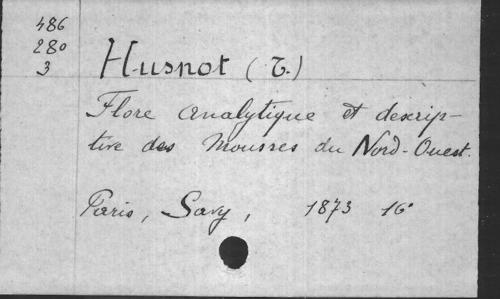 486
280
3
Husnot (T.)
Flore analytique et descrip-
tive des Mousses du Nord-Ouest.
Paris, Savy, 1873 16°